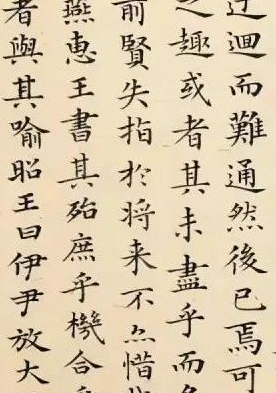 迂迴而難通然後已焉可
之趣或者其未盡乎而
前賢失指扵将来不亦惜
燕惠王書其殆庶乎機合
者與其喻昭王曰伊尹放大